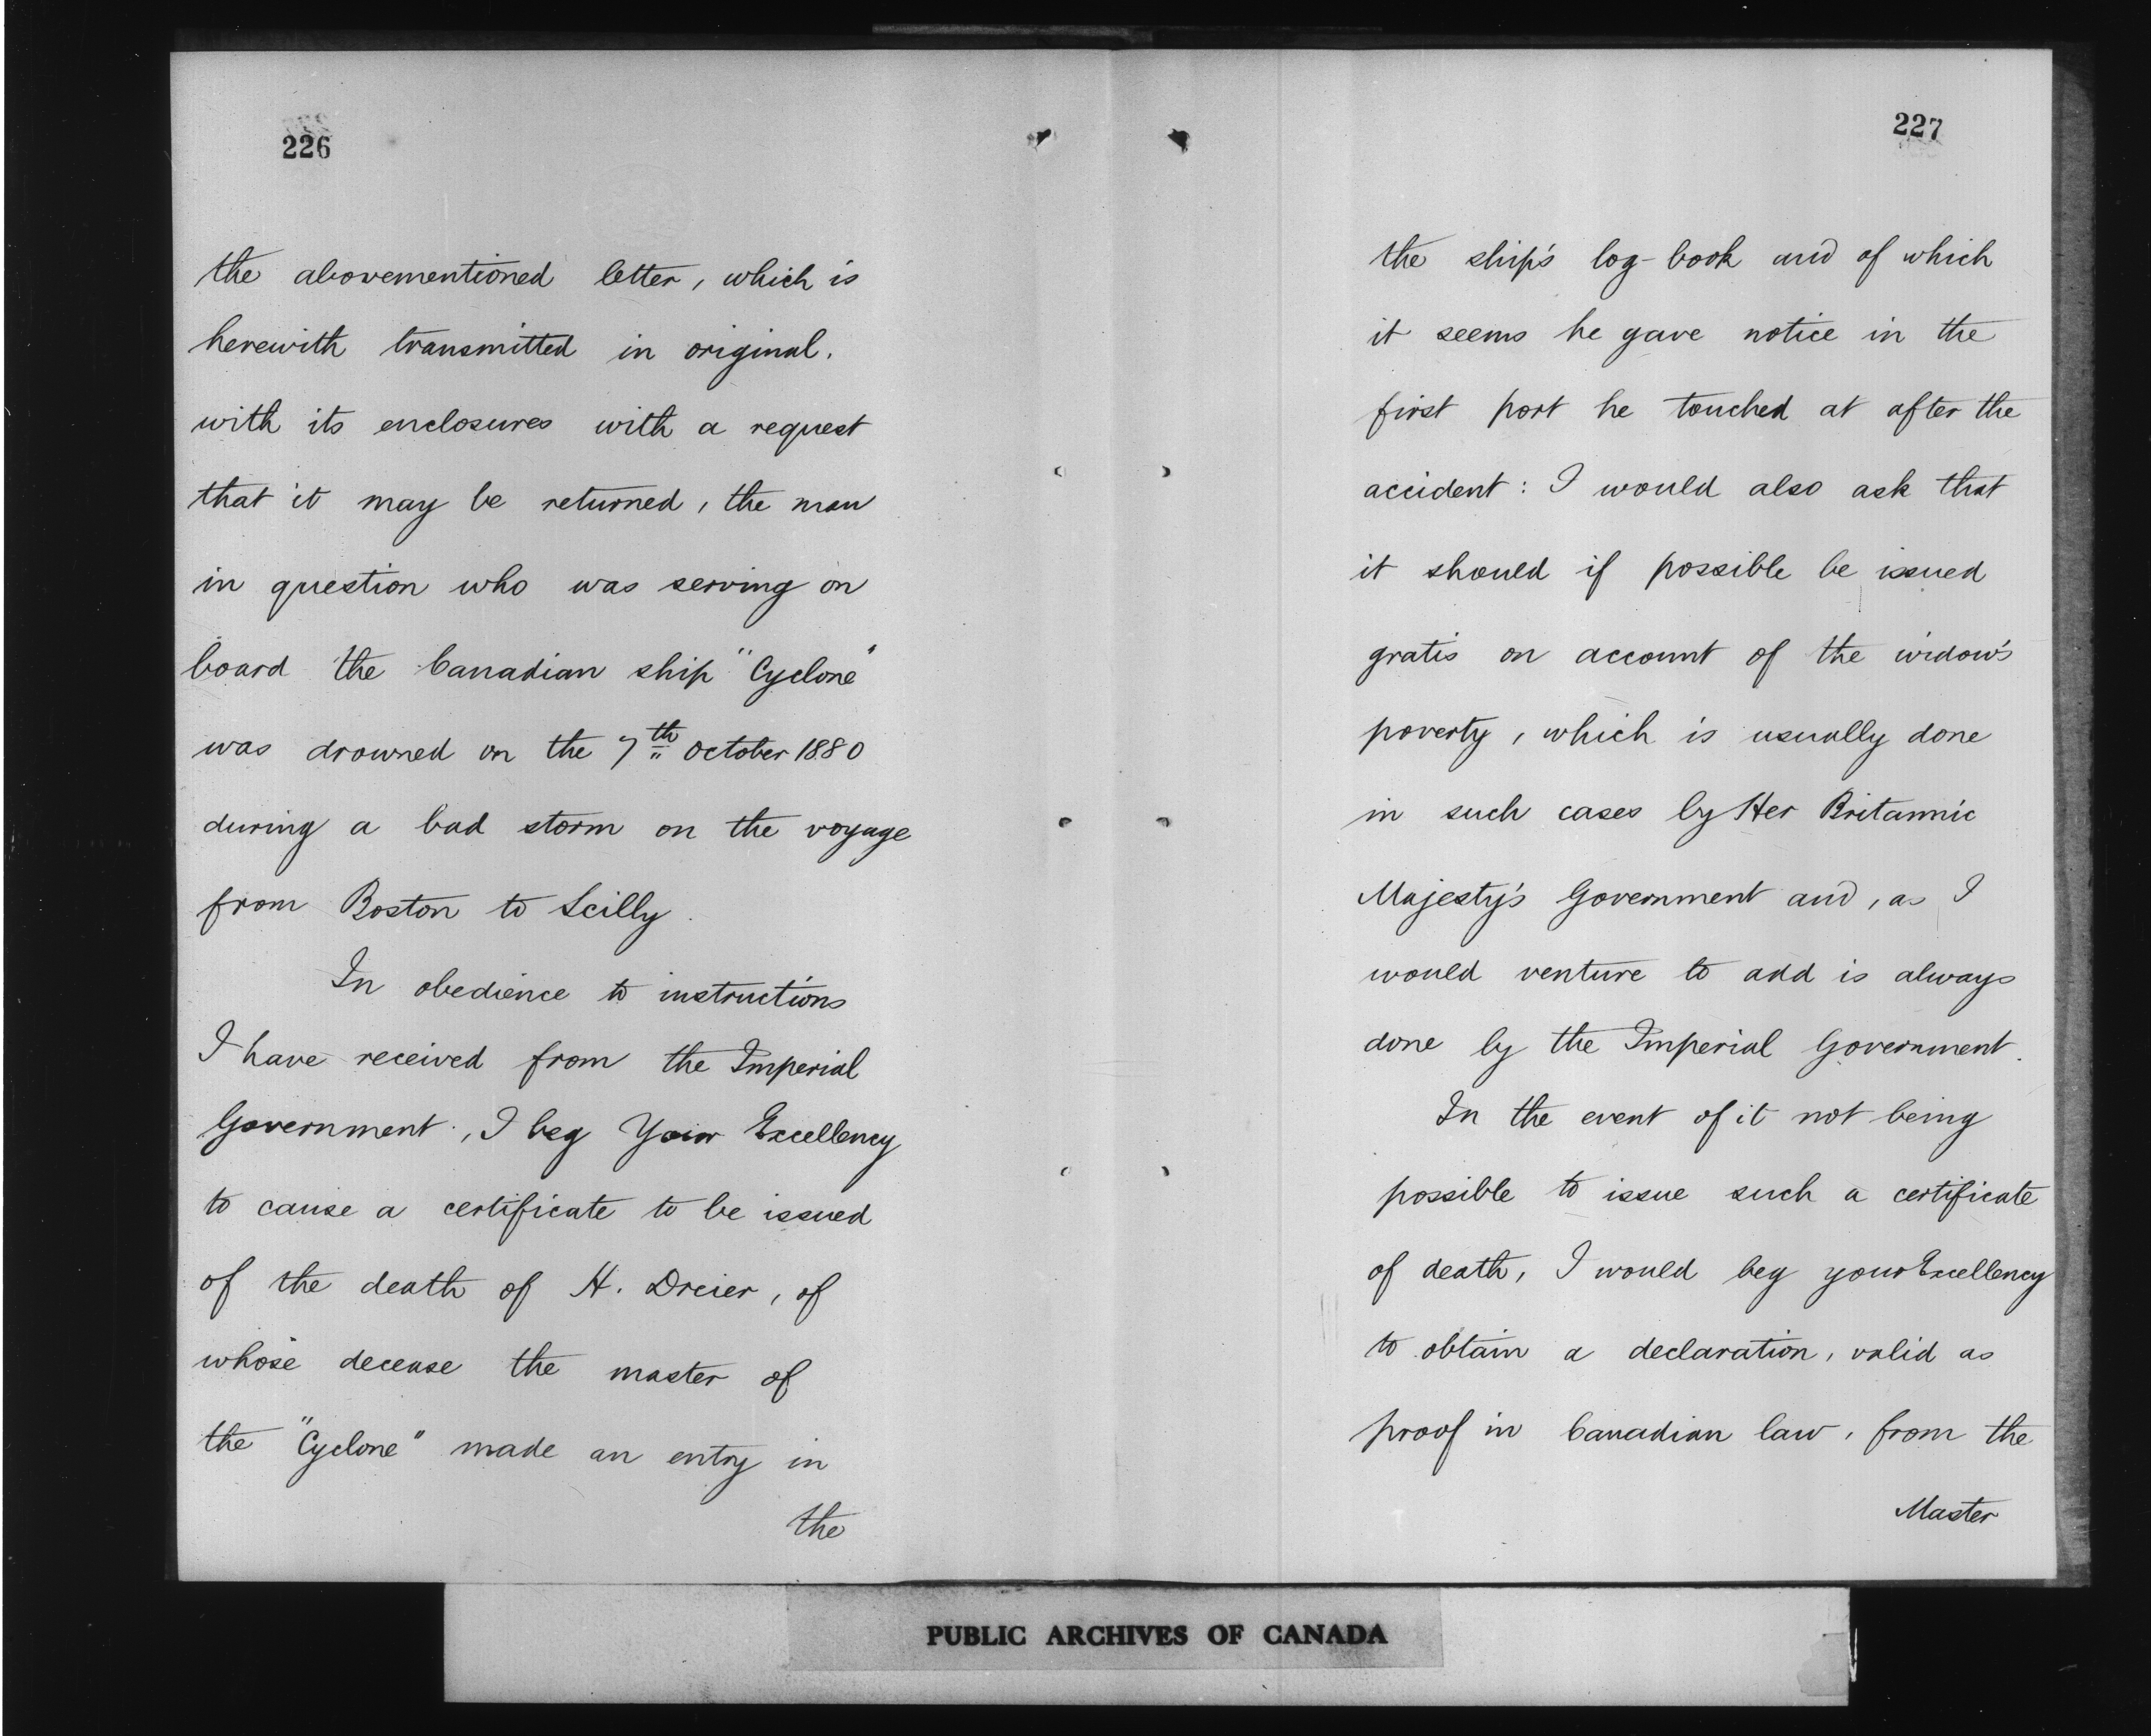 226
the abovementioned letter, which is
herewith transmitted in original.
with its enclosures with a request
that it may be returned, the man
in question who was serving on
board the Canadian ship "Cyclone"
was drowned on the 7th October 1880
during a bad storm on the voyage
from Boston to Scilly.
In obedience to instructions
I have received from the Imperial
Government, I beg Your Excellency
to cause a certificate to be issued
of the death of H. Dreier, of
whose decease the master of
the "Cyclone" made an entry in
the
227
the ship's log-book and of which
it seems he gave notice in the
first port he touched at after the
accident: I would also ask that
it should if possible be issued
gratis on account of the widow's
poverty, which is usually done
in such cases by Her Britannic
Majesty's Government and, as I
would venture to add is always
done by the Imperial Government.
In the event of it not being
possible to issue such a certificate
of death, I would beg your Excellency
to obtain a declaration, valid as
proof in Canadian law, from the
Master
PUBLIC ARCHIVES OF CANADA